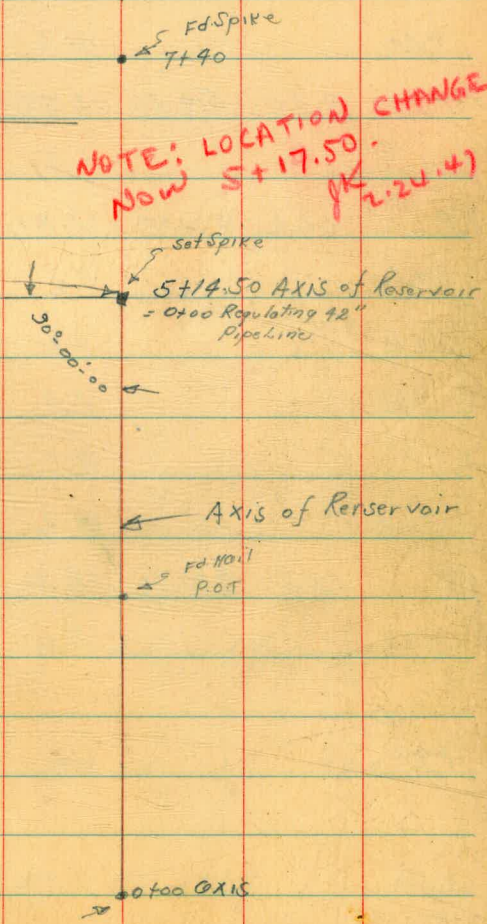 Fd Spike
7+40
NOTE: LOCATION CHANGE
NOW 5+17.50.
JK 2.24.47
set Spike
5+14.50 Axis of Reservoir
= 0+00 Regulating 42"
Pipe Line
90°-00'-00
Axis of Rerservoir
Fd Nail
P.O.T
0+00 Axis